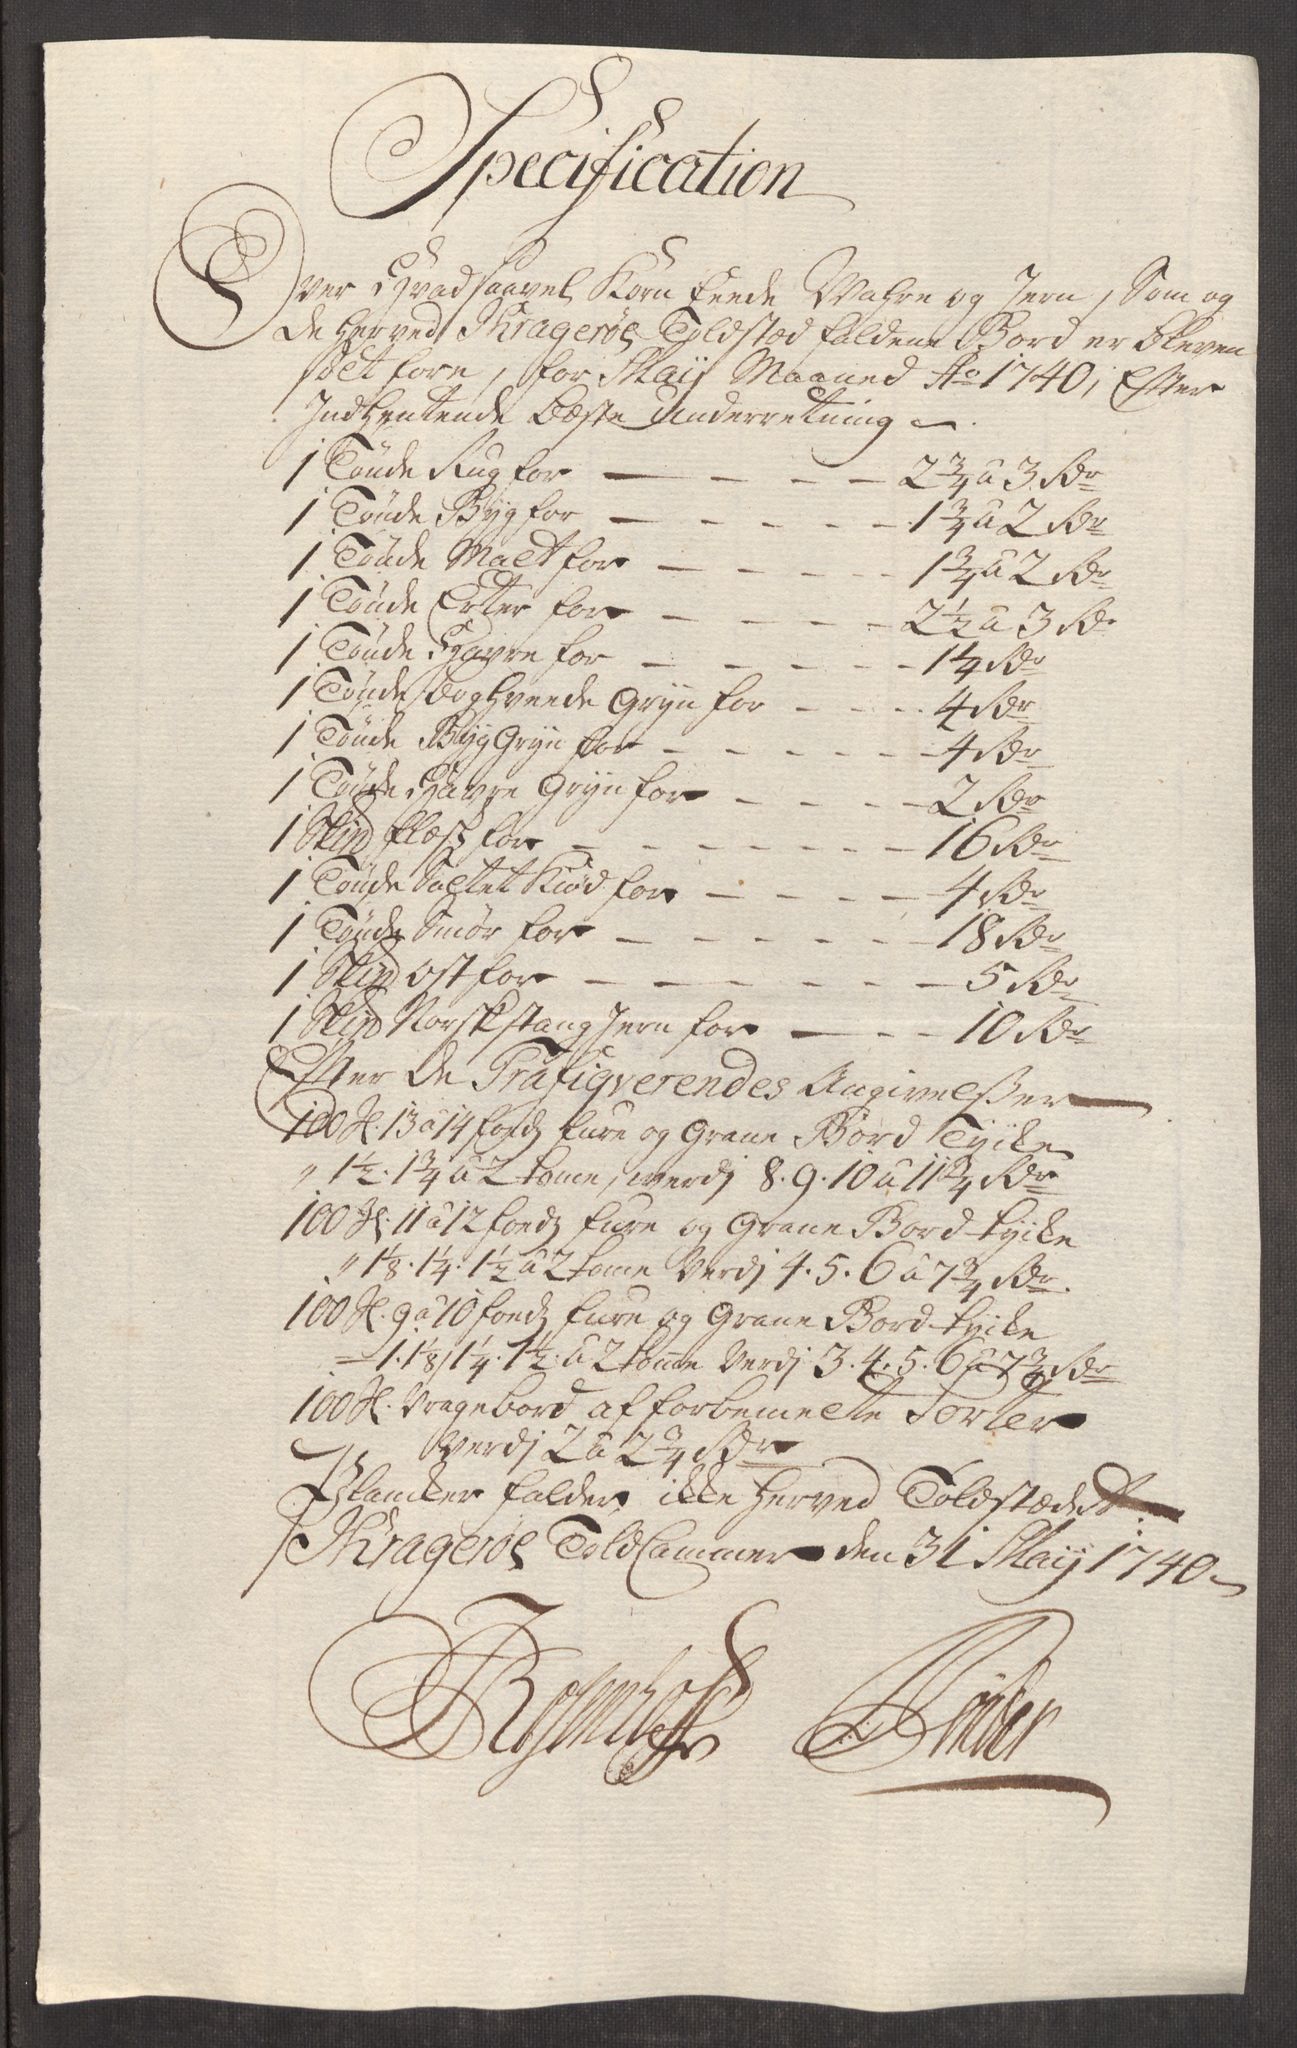 Specification
Over Hvad saavel Korn Feede Wahre og Jern, Som og
de herved Kragerøes Toldsted faldene Bord er bleven
solt fore, for Maij Maaned Ao 1740, Efter
Indhentende bæste Underretning
1 Tønde Rug for — 2 3/4 â 3 Rdr
1 Tønde Byg for — 1 3/4 â 2 Rdr
1 Tønde Malt for — 1 3/4 â 2 Rdr
1 Tønde Erter for — 2 1/2 â 3 Rdr
1 Tønde Havre for — 1 1/4 Rdr
1 Tønde Boghveede Gryn for — 4 Rdr
1 Tønde Byg Gryn for — 4 Rdr
1 Tønde Havre Gryn for — 2 Rdr
1 Skipd Flesk for — 16 Rdr
1 Tønde Saltet Kiød for — 4 Rdr
1 Tønde Smør for — 18 Rdr
1 Skipd Ost for — 5 Rdr
1 Skipd Norsk stang Jern for — 10 Rdr
Efter de Trafiqverendes Angivelßer
100 St. 13 â 14 fods fure og Grane Bord Tyke
" 1 1/2 . 1 3/4 â 2 tome, werdj 8 . 9 . 10 â 11 3/4 Rdr
100 St. 11 â 12 fods fure og Grane Bord tyke
" 1 1/8 . 1 1/4 . 1 1/2 â 2 tome Verdj 4 . 5 . 6 â 7 3/4 Rdr.
100 St. 9 â 10 fods fure og Grane Bord tyke
— 1 . 1 1/8 . 1 1/4 . 1 1/2 . â 2 tome Verdj 3 . 4 . 5 . 6 â 7 3/4 Rdr
100 St. Vragebord af forbemelte Sorter
Verdj 2 â 2 3/4 Rdr
Plancker falder ikke herved Toldstædet.
Kragerøes Told Cammer den 31 Maij 1740